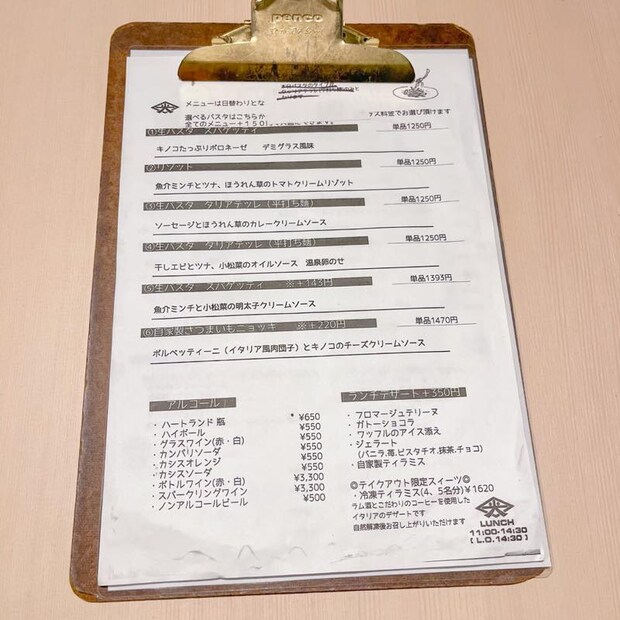 penco
メニューは日替わりとな
選べるパスタはこちらか
ラス料金でお選び頂けます
全てのメニュー+150
①生パスタ スパゲッティ 単品1250円
キノコたっぷりボロネーゼ デミグラス風味
②リゾット 単品1250円
魚介ミンチとツナ、ほうれん草のトマトクリームリゾット
③生パスタ タリアテッレ(平打ち麺) 単品1250円
ソーセージとほうれん草のカレークリームソース
④生パスタ タリアテッレ(平打ち麺) 単品1250円
干しエビとツナ、小松菜のオイルソース 温泉卵のせ
⑤生パスタ スパゲッティ ※+143円 単品1393円
魚介ミンチと小松菜の明太子クリームソース
⑥自家製さつまいもニョッキ ※+220円 単品1470円
ポルペッティーニ(イタリア風肉団子)とキノコのチーズクリームソース
アルコール
・ハートランド 瓶 * ¥650
・ハイボール ¥550
・グラスワイン(赤・白) ¥550
・カンパリソーダ ¥550
・カシスオレンジ ¥550
・カシスソーダ ¥550
・ボトルワイン(赤・白) ¥3,300
・スパークリングワイン ¥3,300
・ノンアルコールビール ¥500
ランチデザート+350円
・フロマージュテリーヌ
・ガトーショコラ
・ワッフルのアイス添え
・ジェラート
(バニラ,苺,ピスタチオ,抹茶,チョコ)
・自家製ティラミス
◎テイクアウト限定スィーツ◎
・冷凍ティラミス(4、5名分)¥1620
ラム酒とこだわりのコーヒーを使用した
イタリアのデザートです
自然解凍後お召し上がりいただけます
LUNCH
11:00-14:30
[ L.O.14:30 ]